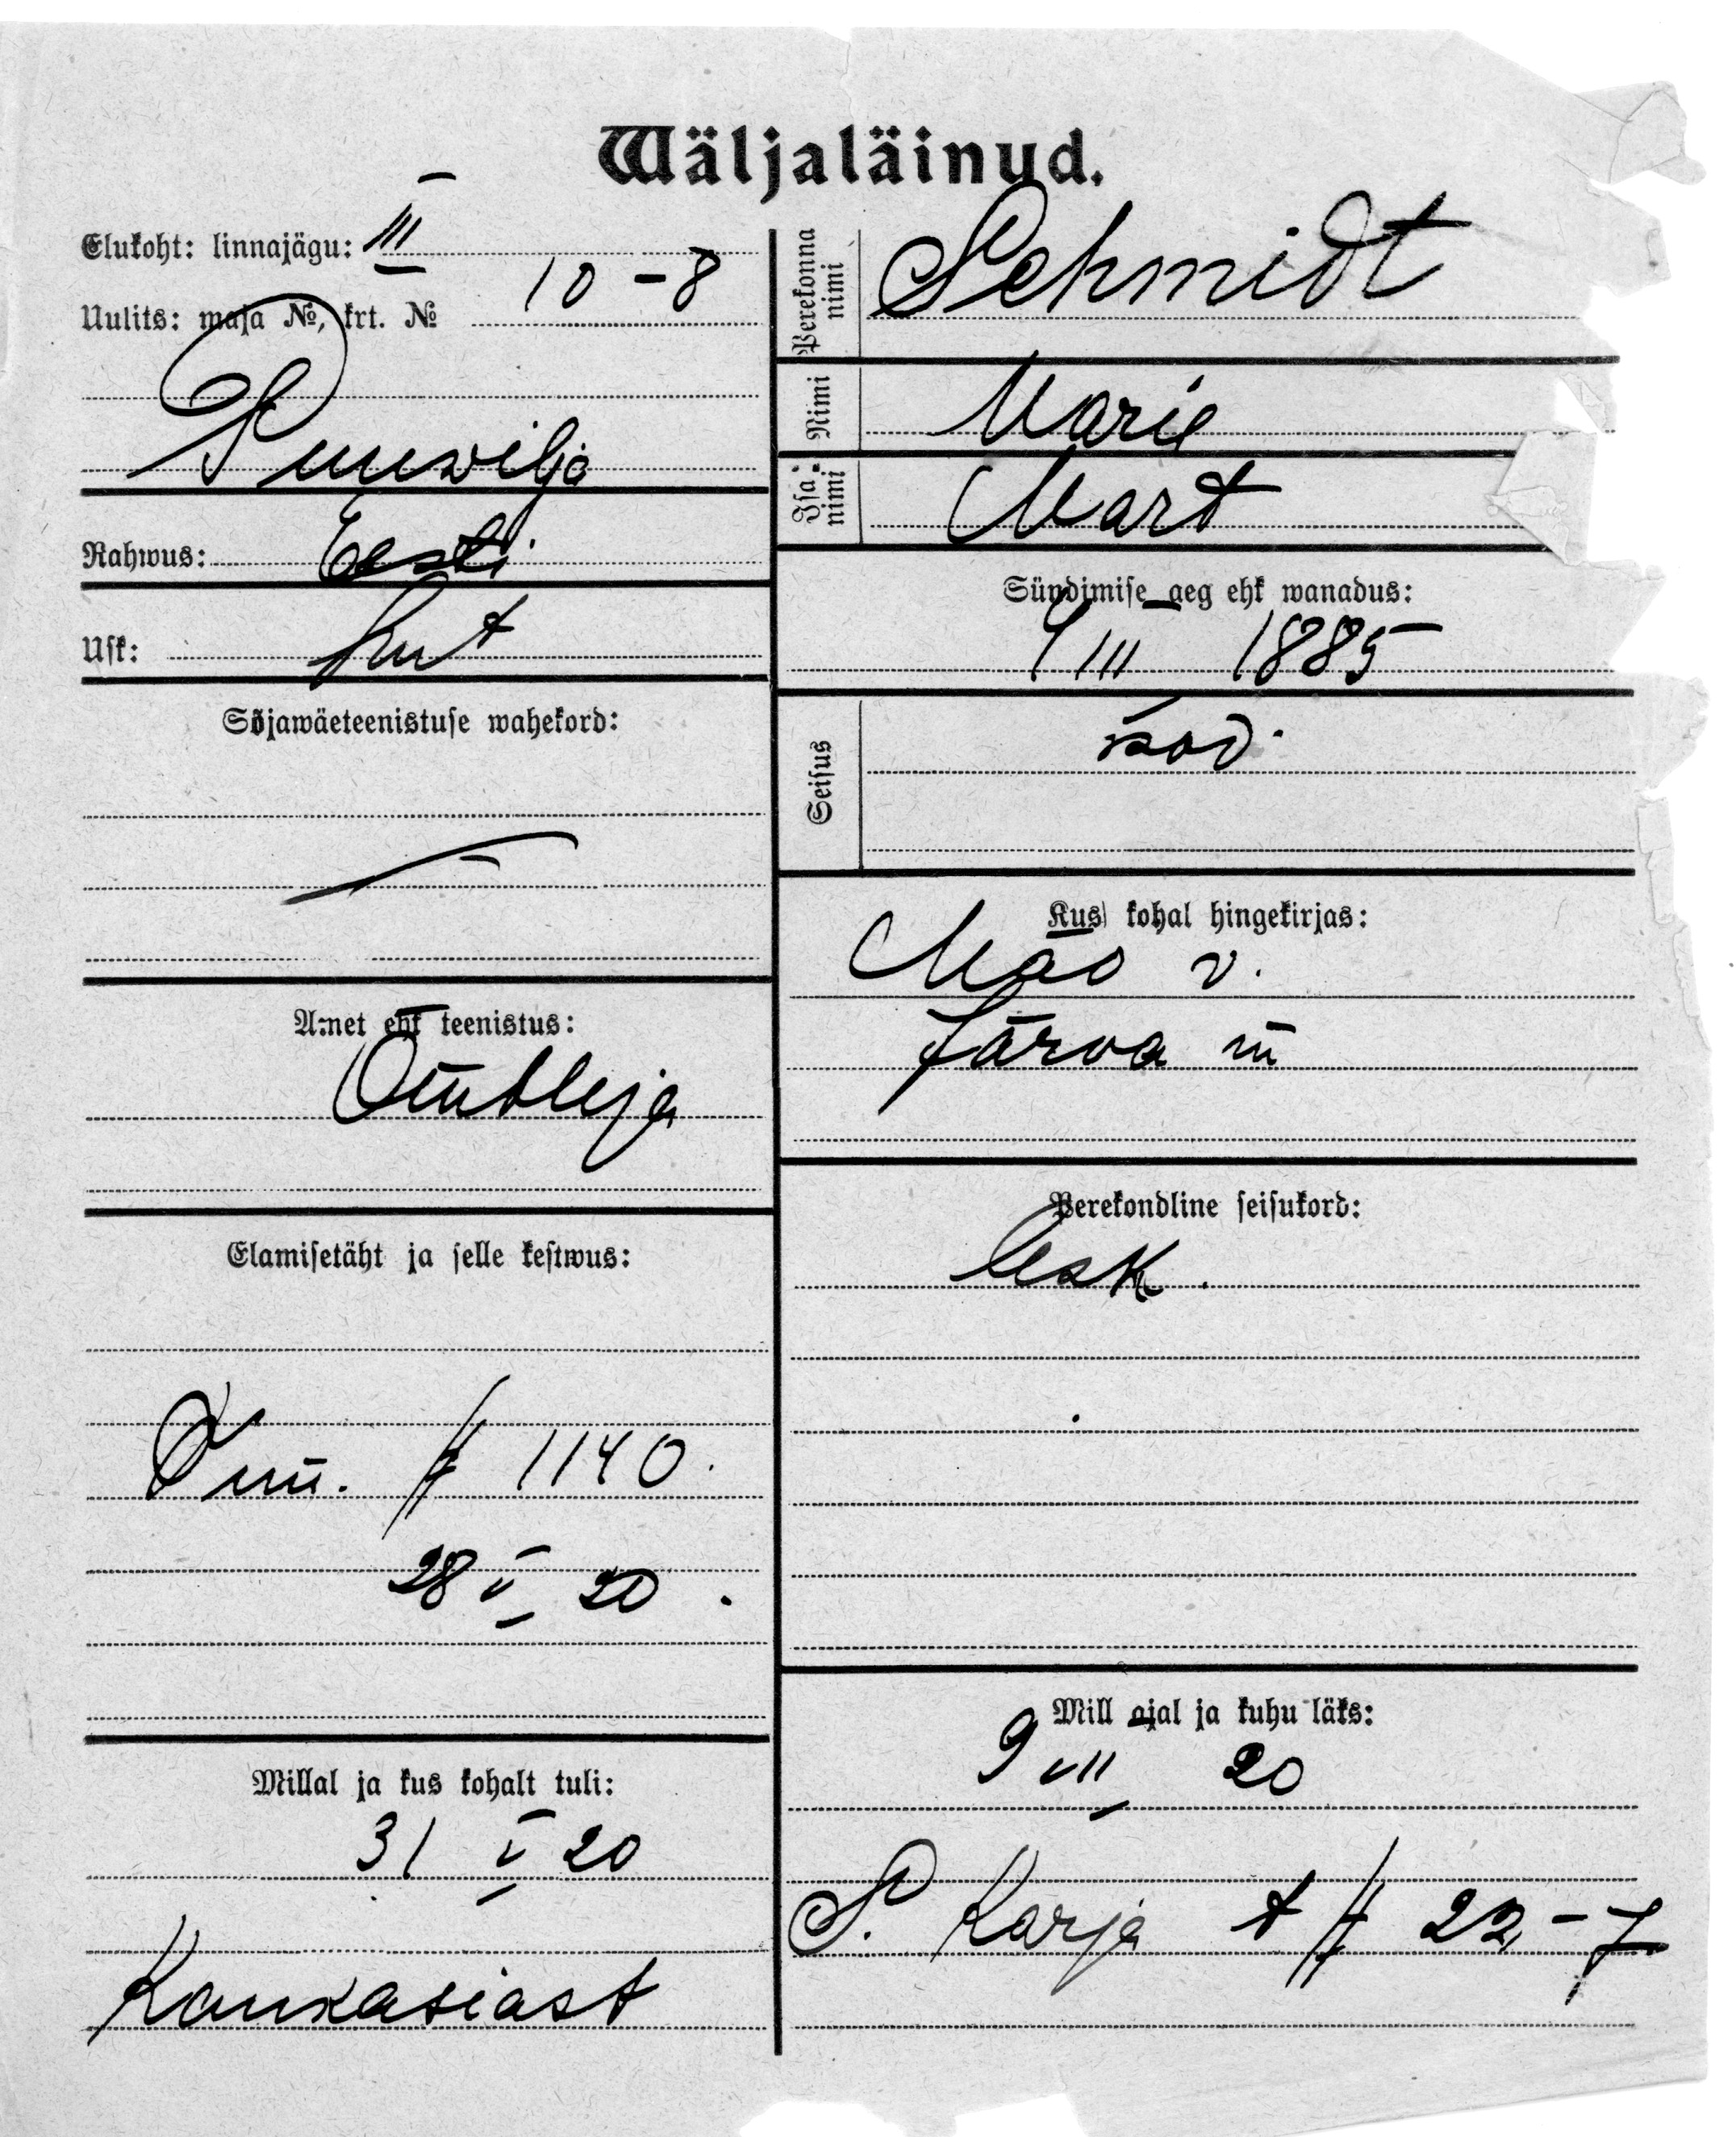 Wäljaläinud.
Elukoht: linnajägu: III
Uulits: maja №, krt. № 10-8
Puuwilja
Rahwus: Eesti
Usk: Lut
Sõjawäeteenistuse wahekord:
—
Amet ehk teenistus:
Õmbleja
Elamisetäht ja selle kestwus:
№ 1140.
28 V 20.
Millal ja kus kohalt tuli:
31 V 20
Kaukasiast
Perekonna nimi Schmidt
Nimi Marie
Isa-nimi Mart
Sündimise aeg ehk wanadus:
III 1885
Seisus kod.
Kus kohal hingekirjas:
Mäo v.
Järva m
Perekondline seisukord:
lesk.
Mill ajal ja kuhu läks:
9 VII 20
S. Karja t № 22-7